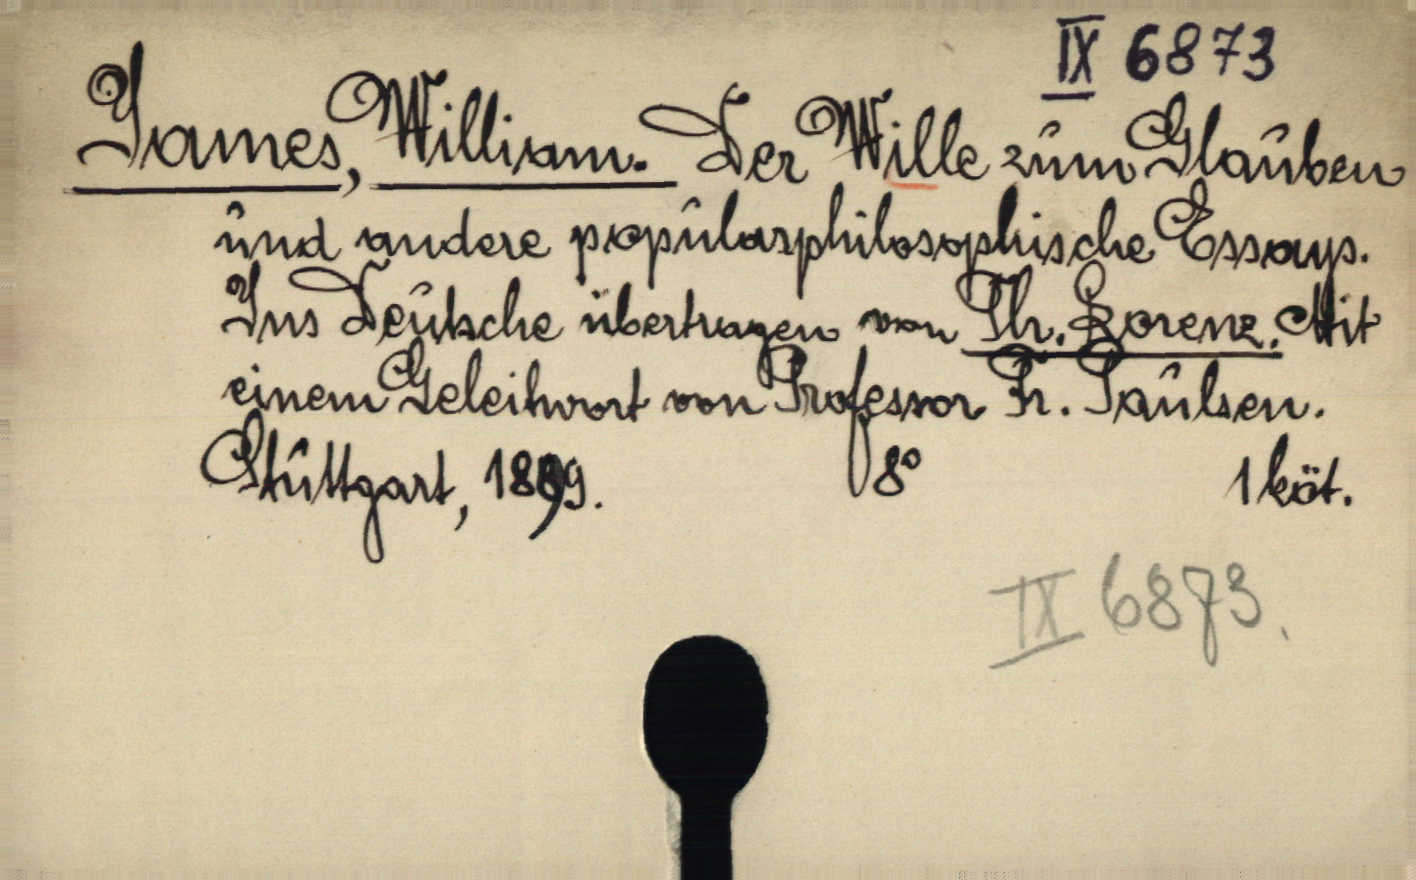 IX 6873
James, William. Der Wille zum Glauben
und andere popularphilosophische Essays.
Ins Deutsche übertragen von Th. Lorenz. Mit
einem Geleitwort von Professor Fr. Paulsen.
Stuttgart, 1899. 8° 1 köt.
IX 6873.